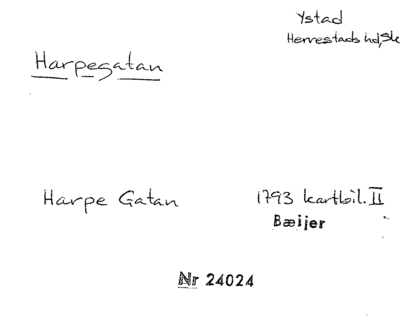 Ystad
Herrestads hd, Sk
Harpegatan
Harpe Gatan 1793 kartbil. II
Bæijer
Nr 24024